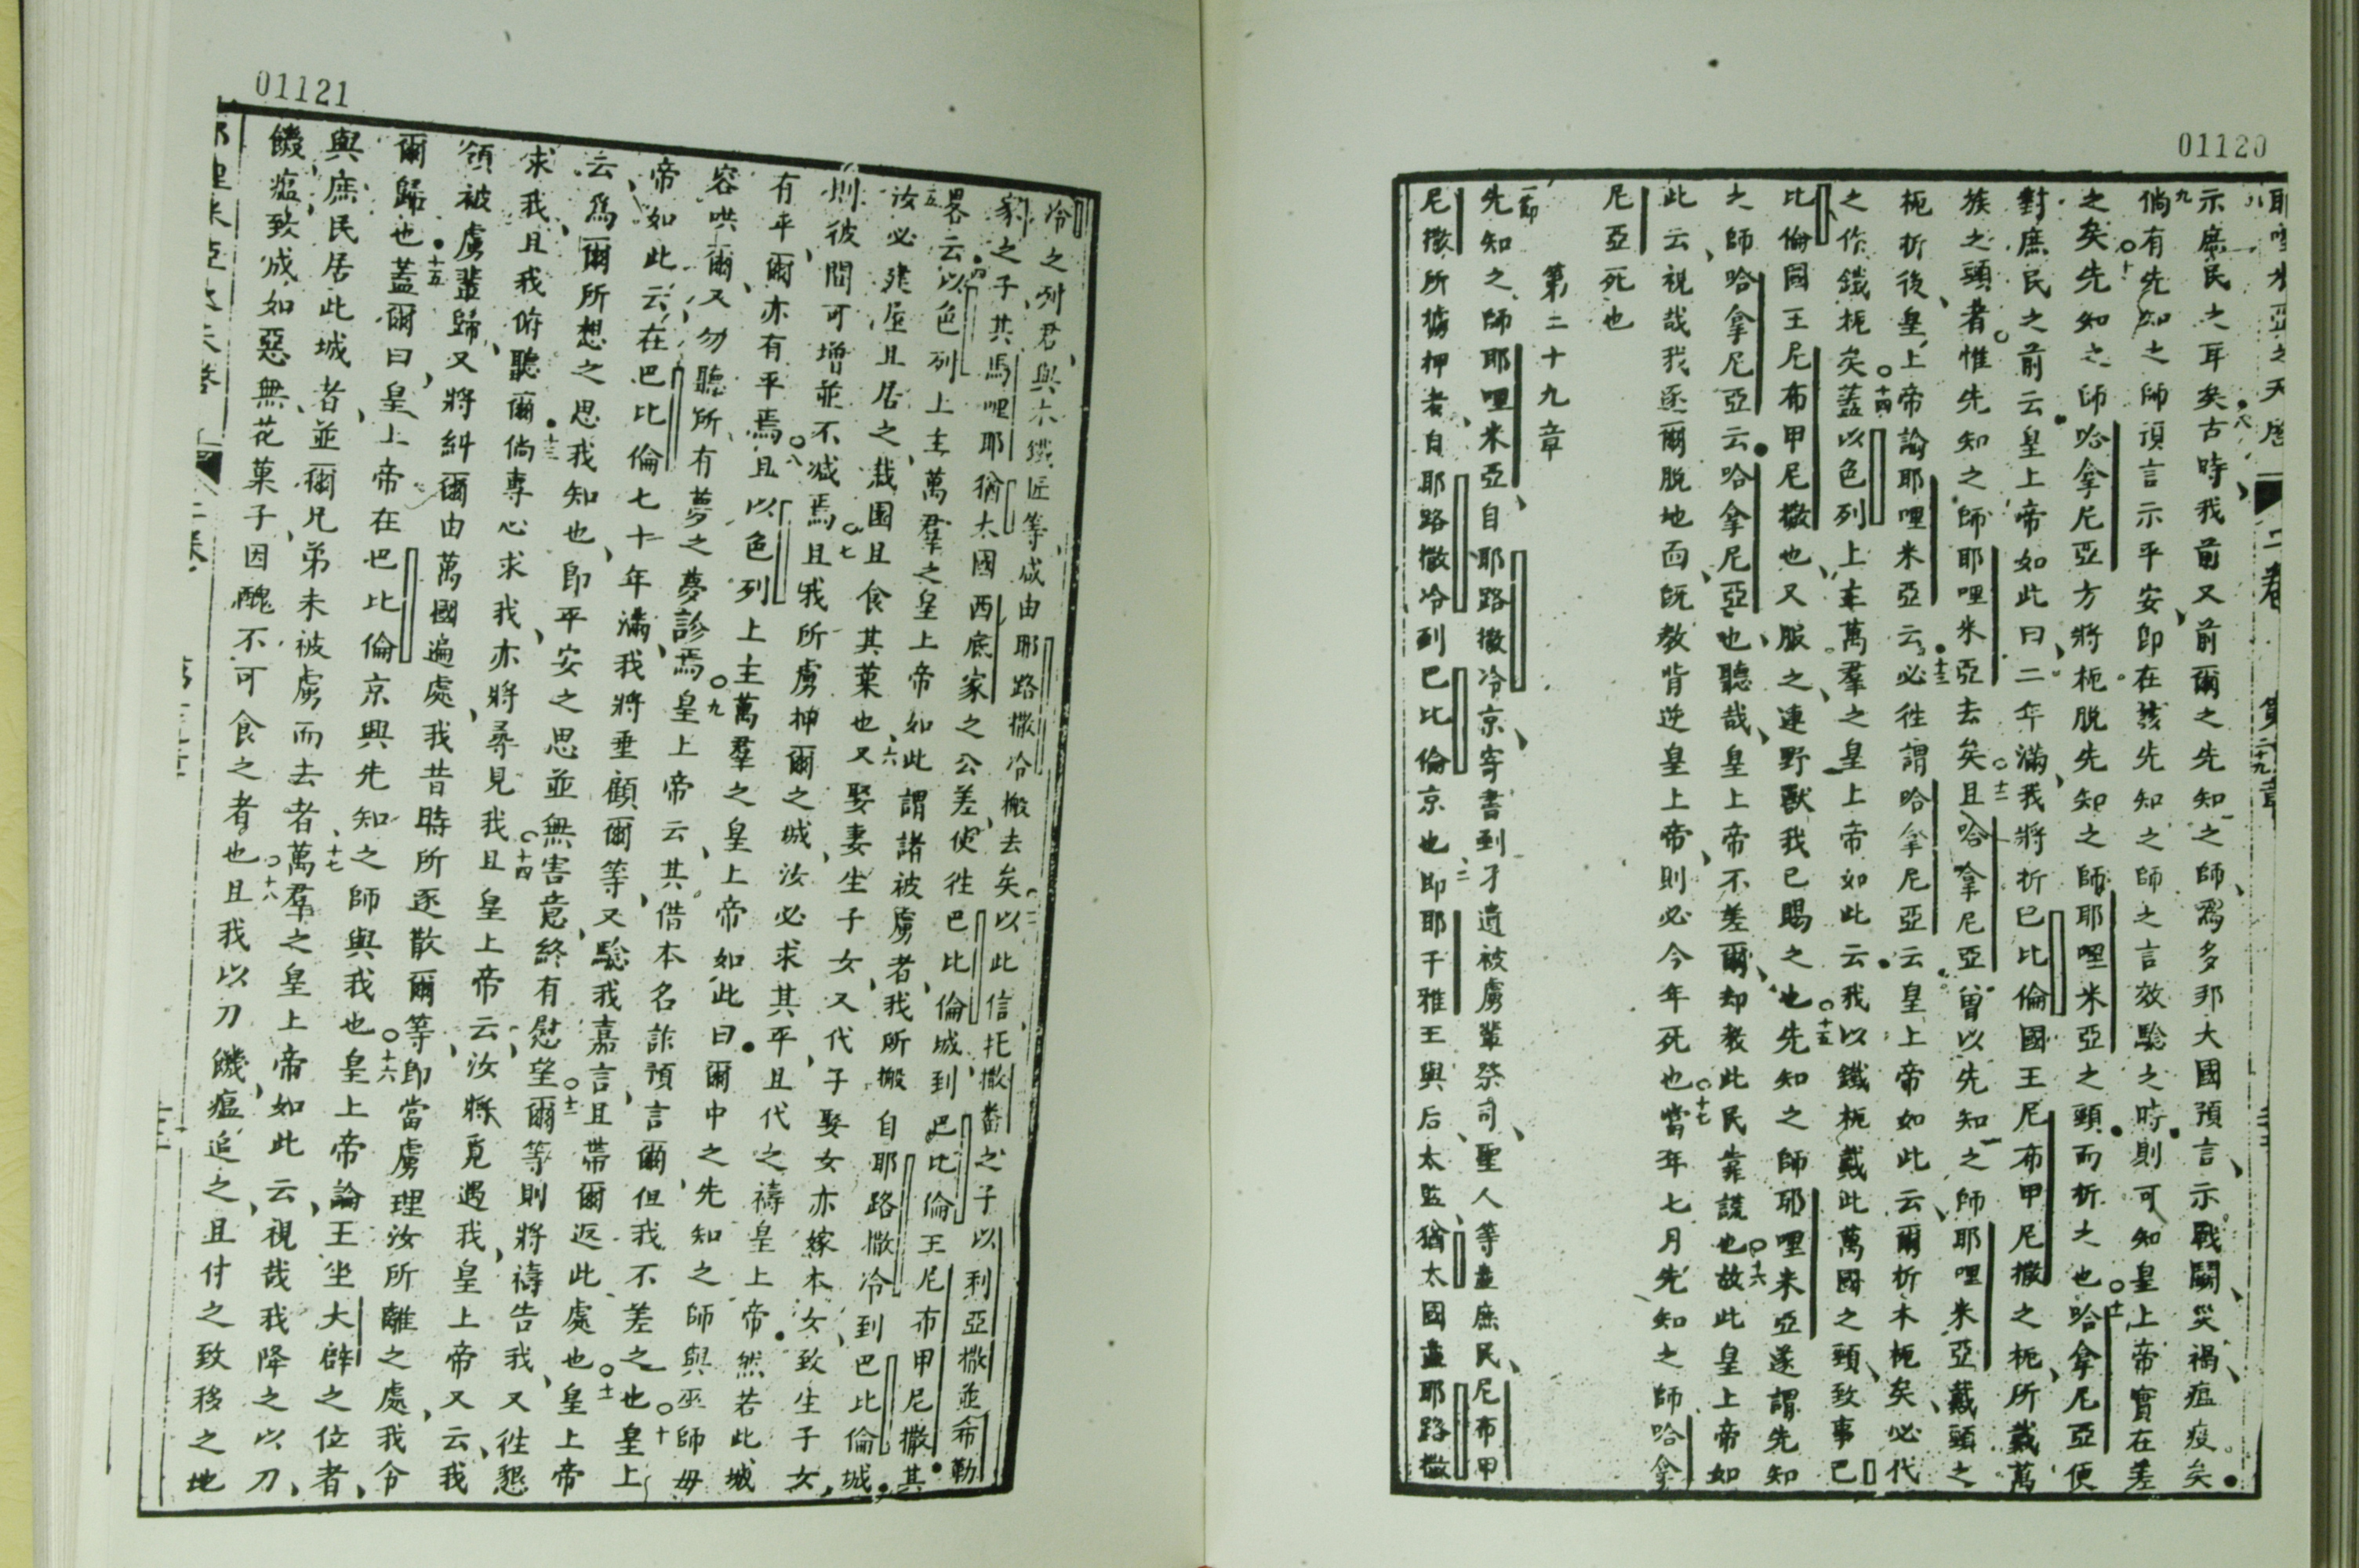 01120
示庶民之耳矣古時我前又前爾之先知之師爲多邦大國預言示戰鬪災禍瘟疫矣
九
倘有先知之師預言示平安卽在該先知之師之言效驗之時則可知皇上帝實在差
之矣先知之師哈拿尼亞方將枙脫先知之師耶哩米亞之頸而折之也哈拿尼亞便
對庶民之前云皇上帝如此曰二年滿我將折巴比倫國王尼布甲尼撒之枙所戴萬
族之頭者惟先知之師耶哩米亞去矣且哈拿尼亞曾以先知之師耶哩米亞戴頭之
枙折後皇上帝諭耶哩米亞云必徃謂哈拿尼亞云皇上帝如此云爾折木枙矣必代
之作鐵枙矣蓋以色列上主萬羣之皇上帝如此云我以鐵枙戴此萬國之頸致事巴
比倫國王尼布甲尼撒也又服之連野獸我已賜之也先知之師耶哩米亞遂謂先知
之師哈拿尼亞云哈拿尼亞也聽哉皇上帝不差爾却教此民靠謊也故此皇上帝如
此云視哉我逐爾脫地面旣教背逆皇上帝則必今年死也當年七月先知之師哈拿
尼亞死也
第二十九章
一節
先知之師耶哩米亞自耶路撒冷京寄書到孑遺被虜輩祭司聖人等並庶民尼布甲
尼撒所擄押者自耶路撒冷到巴比倫京也卽耶干雅王與后太監猶太國並耶路撒
01121
冷之列君與木鐵匠等咸由耶路撒冷搬去矣以此信托撒番之子以利亞撒並希勒
家之子其馬哩耶猶太國西底家之公差使徃巴比倫城到巴比倫王尼布甲尼撒其
畧云以色列上主萬羣之皇上帝如此謂諸被虜者我所搬自耶路撒冷到巴比倫城
汝必建屋且居之栽園且食其菓也又娶妻生子女又代子娶女亦嫁本女致生子女
則彼間可增並不减焉且我所虜押爾之城汝必求其平且代之禱皇上帝然若此城
有平爾亦有平焉且以色列上主萬羣之皇上帝如此曰爾中之先知之師與巫師毋
容哄爾又勿聽所有夢之夢診焉皇上帝云其借本名詐預言爾但我不差之也皇上
帝如此云在巴比倫七十年滿我將垂顧爾等又驗我嘉言且帶爾返此處也皇上帝
云爲爾所想之思我知也卽平安之思並無害意終有慰望爾等則將禱告我又徃懇
求我且我俯聽爾倘專心求我亦將尋見我且皇上帝云汝將覓遇我皇上帝又云我
領被虜輩歸又將糾爾由萬國遍處我昔時所逐散爾等卽當虜理汝所離之處我令
爾歸也蓋爾曰皇上帝在巴比倫京興先知之師與我也皇上帝諭王坐大辟之位者
與庶民居此城者並爾兄弟未被虜而去者萬羣之皇上帝如此云視哉我降之以刀
饑瘟致成如惡無花菓子因醜不可食之者也且我以刀饑瘟追之且付之致移之地